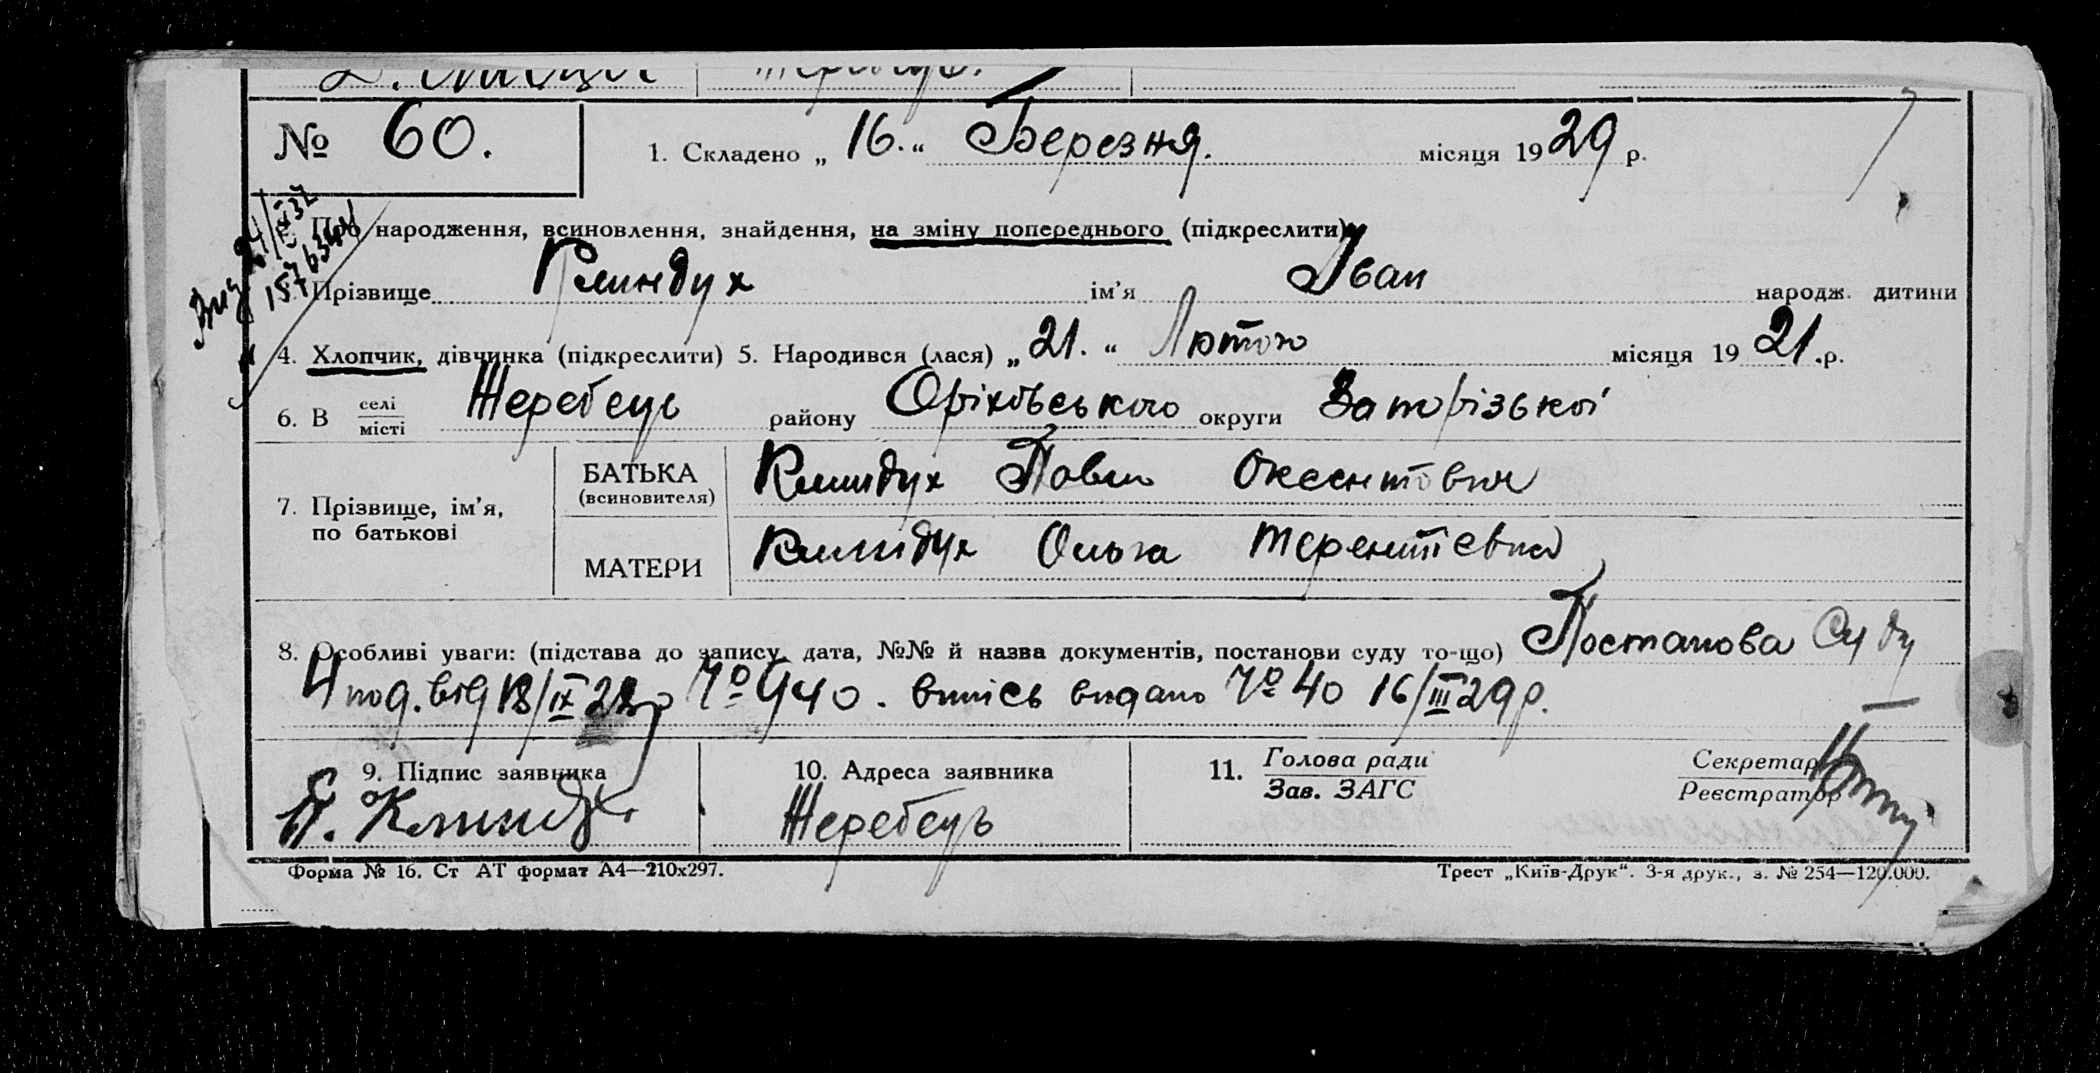 № 60. 1. Складено „ 16. “ Березня. місяця 1929 р.
народження, всиновлення, знайдення, на зміну попереднього (підкреслити)
Прізвище Клиндух ім’я Іван народж. дитини
4. Хлопчик, дівчинка (підкреслити) 5. Народився (лася) „ 21. “ Лютого місяця 1921.р.
6. В селі місті Жеребець району Оріхівського округи Запорізької
7. Прізвище, ім’я, по батькові
БАТЬКА (всиновителя) Клиндух Павло
МАТЕРИ Клиндух Ольга Терентіевна
8. Особливі уваги: (підстава до запису, дата, №№ й назва документів, постанови суду то-що) Постанова Суду
від 18/IX 28р № 940. випись видано № 40 16/III 29р.
9. Підпис заявника 10. Адреса заявника 11. Голова ради Секретар
Зав. ЗАГС Реєстратор
Жеребець
Форма № 16. Ст АТ формат А4—210х297. Трест „Київ-Друк“. 3-я друк., з. № 254—120.000.